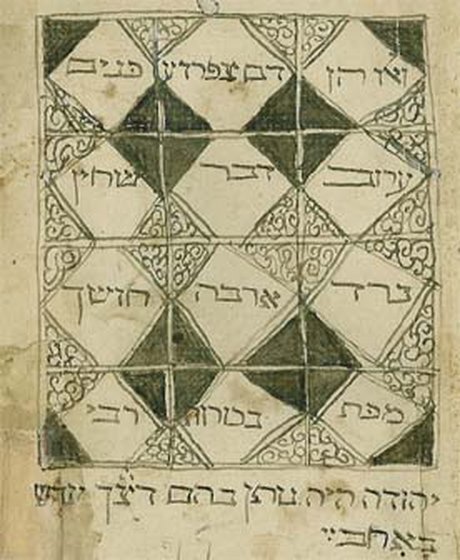 ואלו הן דם צפרדיע כנים
ערוב דבר שחין
ברד ארבה חושך
מכת בכורות רבי
יהודה היה נותן בהם דיצך
באחב